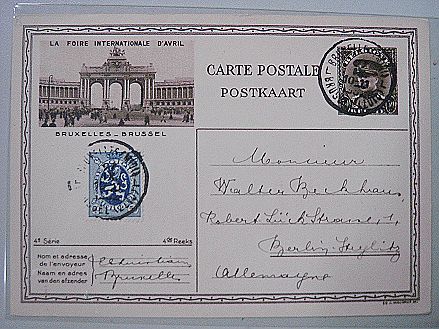 LA FOIRE INTERNATIONALE D'AVRIL
BRUXELLES _ BRUSSEL
CARTE POSTALE
POSTKAART
Monsieur
Walter Beckhaus
Robert Lück Strasse, 1,
Berlin-Steglitz
Allemagne
4e Série
4de Reeks
Nom et adresse
de l'envoyeur
Naam en adres
van den afzender
Bruxelles